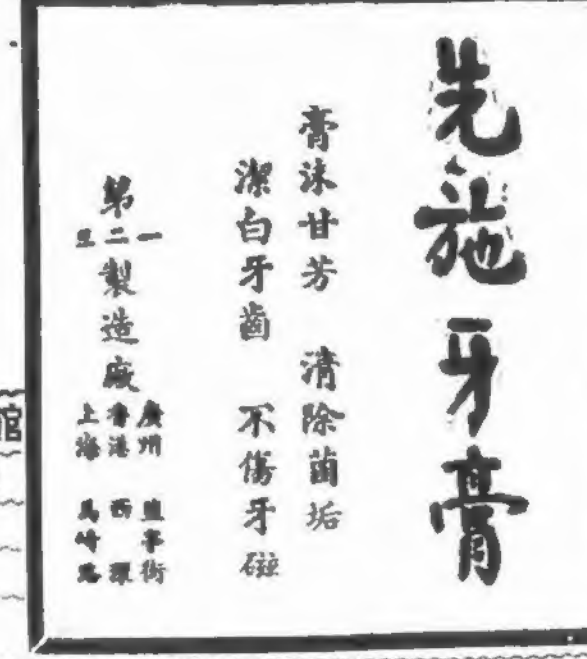 先施牙膏
膏沬甘芳 清除菌垢
潔白牙齒 不傷牙磁
第一二三製造廠
廣州 鹽亭街
香港 西環
上海 馬崎路
館